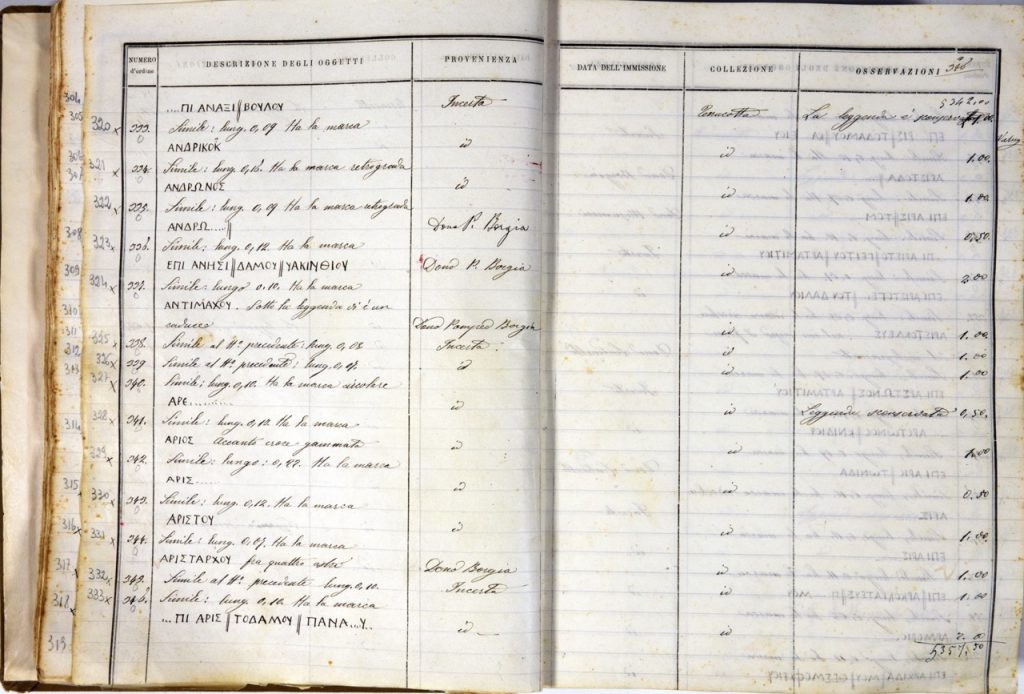 NUMERO d'ordine DESCRIZIONE DEGLI OGGETTI PROVENIENZA DATA DELL'IMMISSIONE COLLEZIONE OSSERVAZIONI
5342,00
....ΠΙ ΑΝΑΞΙ||ΒΟΥΛΟΥ Incerta La leggenda è
320 333. Simile: lung. 0,09 Ha la marca
ΑΝΔΡΙΚΟΚ id id 1.00
321 334. Simile: lung. 0,15. Ha la marca retrograda
ΑΝΔΡΩΝΟΣ id id
322 335. Simile: lung. 0,09 Ha la marca retrograda
ΑΝΔΡΩ....|| Dono P. Borgia id 0,50
323 336. Simile: lung. 0,12. Ha la marca
ΕΠΙ ΑΝΗΣΙ||ΔΑΜΟΥ||ΥΑΚΙΝΘΙΟΥ Dono P. Borgia id 2.00
324 337. Simile: lungo 0,10. Ha la marca
ΑΝΤΙΜΑΧΟΥ. Sotto la leggenda vi è un
caduceo Dono Pompeo Borgia id 1.00
325 338. Simile al N° precedente lung. 0,08. Incerta id 1.00
326 339. Simile al N° precedente: lung. 0,07. id id 1.00
327 340. Simile: lung. 0,10. Ha la marca
ΑΡΕ........ id id Leggenda 0,50
328 341. Simile: lung. 0,12. Ha la marca
ΑΡΙΟΣ Accanto croce gammata id id 1.00
329 342. Simile: lungo: 0,22. Ha la marca
ΑΡΙΣ..... id id 0.50
330 343. Simile: lung. 0,12. Ha la marca
ΑΡΙΣΤΟΥ id id 1.00
331 344. Simile: lung. 0,07. Ha la marca
ΑΡΙΣΤΑΡΧΟΥ fra quattro astri Dono Borgia id 1.00
332 345. Simile al N° precedente lung. 0,10. Incerta id 1.00
333 346. Simile: lung. 0,10. Ha la marca
...ΠΙ ΑΡΙΣ||ΤΟΔΑΜΟΥ||ΠΑΝΑ...Υ.. id id 2.00
5357.50